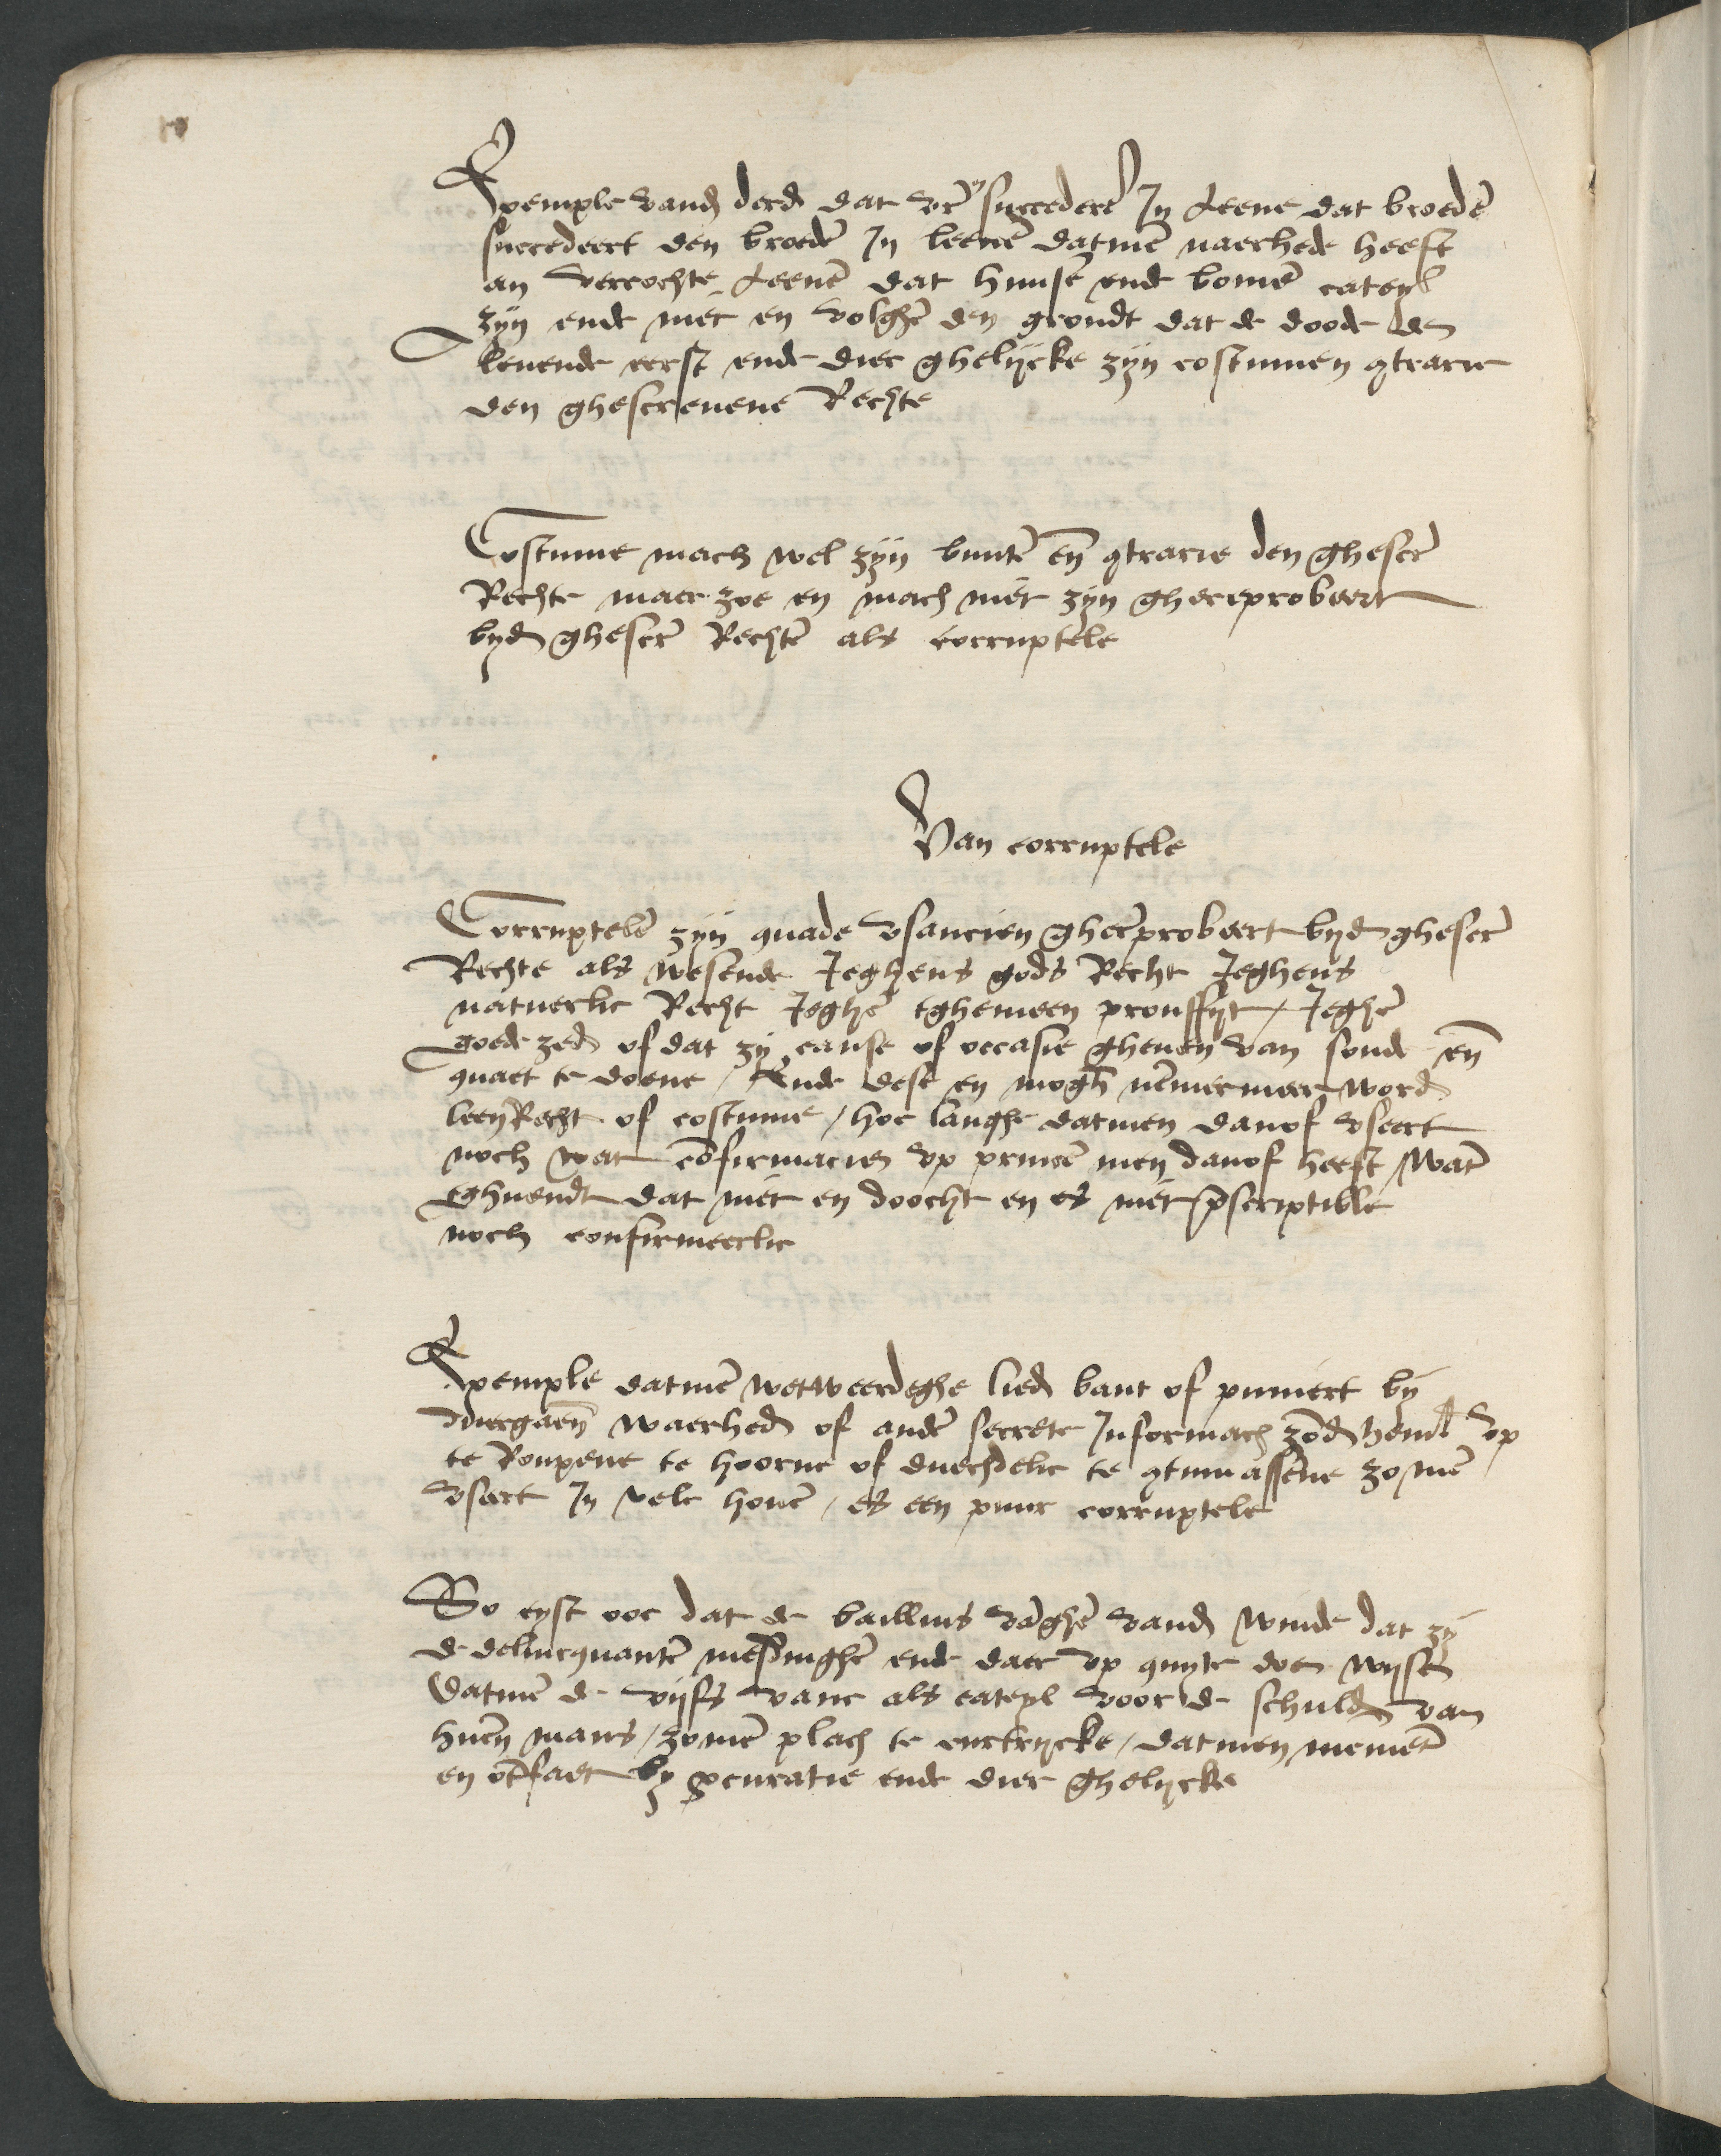 Exemple vand derd dat vr succedere In Leene dat broede
succedeert den broede In leene datme naerhede heeft
an vercochte Leene dat huuse ende bome cateyl
zyn ende niet en volghe den grondt dat de doode den
levende eerst ende dier ghelycke zyn costumen qtrarie
den ghescrevene Rechte
Costume mach wel zyn bunte en qtrarie den ghescr
Rechte maer zoe en mach niet zyn ghereprobeert
byd ghescr Rechte als corruptele
Van corruptele
Corruptele zyn quade usancien ghereprobeert byd ghescr
Rechte als wesende Jeghens gods Recht Jeghens
natuerlic Recht Jeghe tghemeen prouffyt / Jeghe
goede zed of dat zy cause of occasie gheven van sonde en
quaet te doene / Ende dese en mogh nemmermeer word
leenRecht of costume / hoe langhe datmen danof useert
noch wat confirmacien up prince men danof heeft / Want
tghuendt dat niet en doocht en es niet pscriptible
noch confirmeerlic
Exemple datme wetweerdeghe lied bant of puniert by
duergaen waerhed of ande secrete Informach zond heml up
te Roupene te hoorne of duechdelic te qtumassene zo men
useert In vele hove / es een puur corruptele
So eyst ooc dat de baillius vraghe vand winde dat zy
de delincquante mesdinghe ende daer up quyte doen wysen
Datme de vyfs vanc als cateyl voor de schulde van
huen mans / zo men plach te curtrycke / datmen niement
en ontfaet by pcuratie ende dier ghelycke